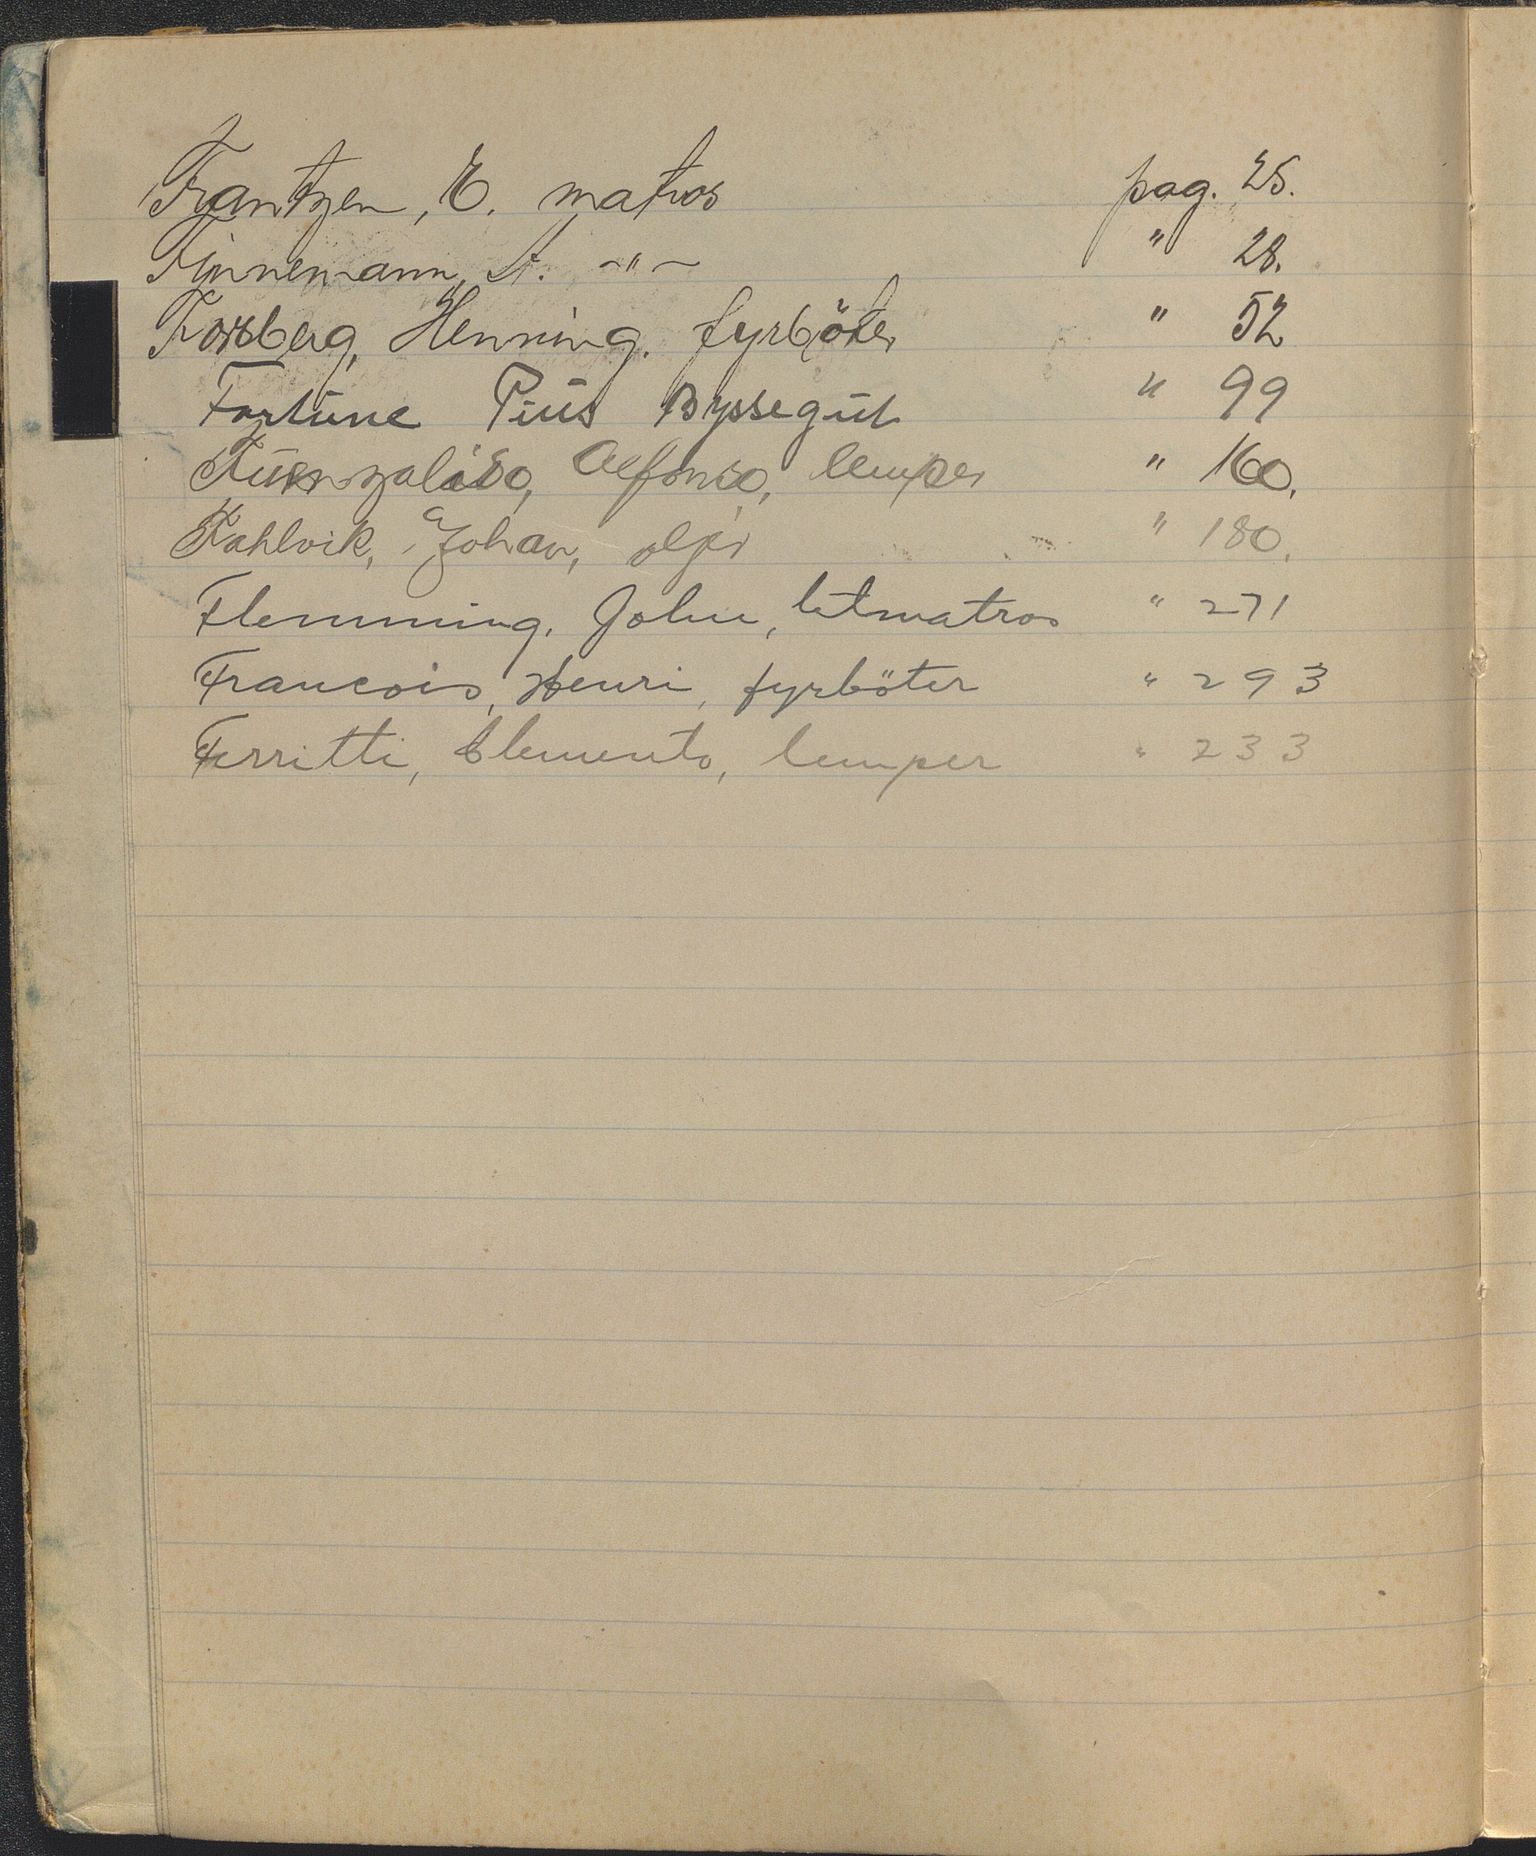 Frantzen, E. matros pag. 25.
Finnemann, A. -"- " 28.
Forsberg, Henning. fyrböter " 52
Fortune Pius Byssegut " 99
Alfonso, lemper " 160.
Fahlvik, Johan, oljer " 180.
Flemming, John, letmatros " 271
Francois, Henri, fyrböter " 293
Ferritti, Clemento, lemper " 233